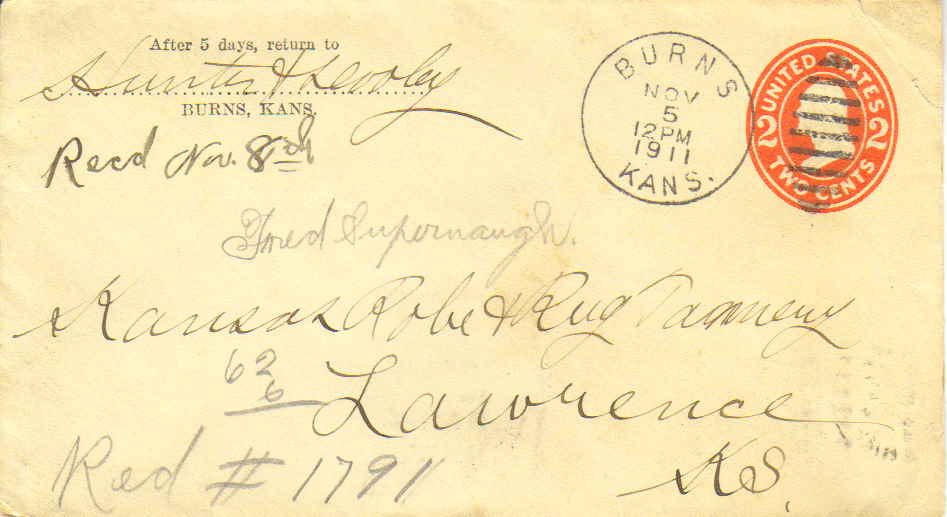 After 5 days, return to
Hunter &
BURNS, KANS.
Recd Nov. 8th
BURNS
NOV
5
12 PM
1911
KANS.
UNITED STATES
2 2
TWO CENTS
Fred Supernaugh.
Kansas Robe & Rug Tannery
62
6
Lawrence
Red # 1791
KS.